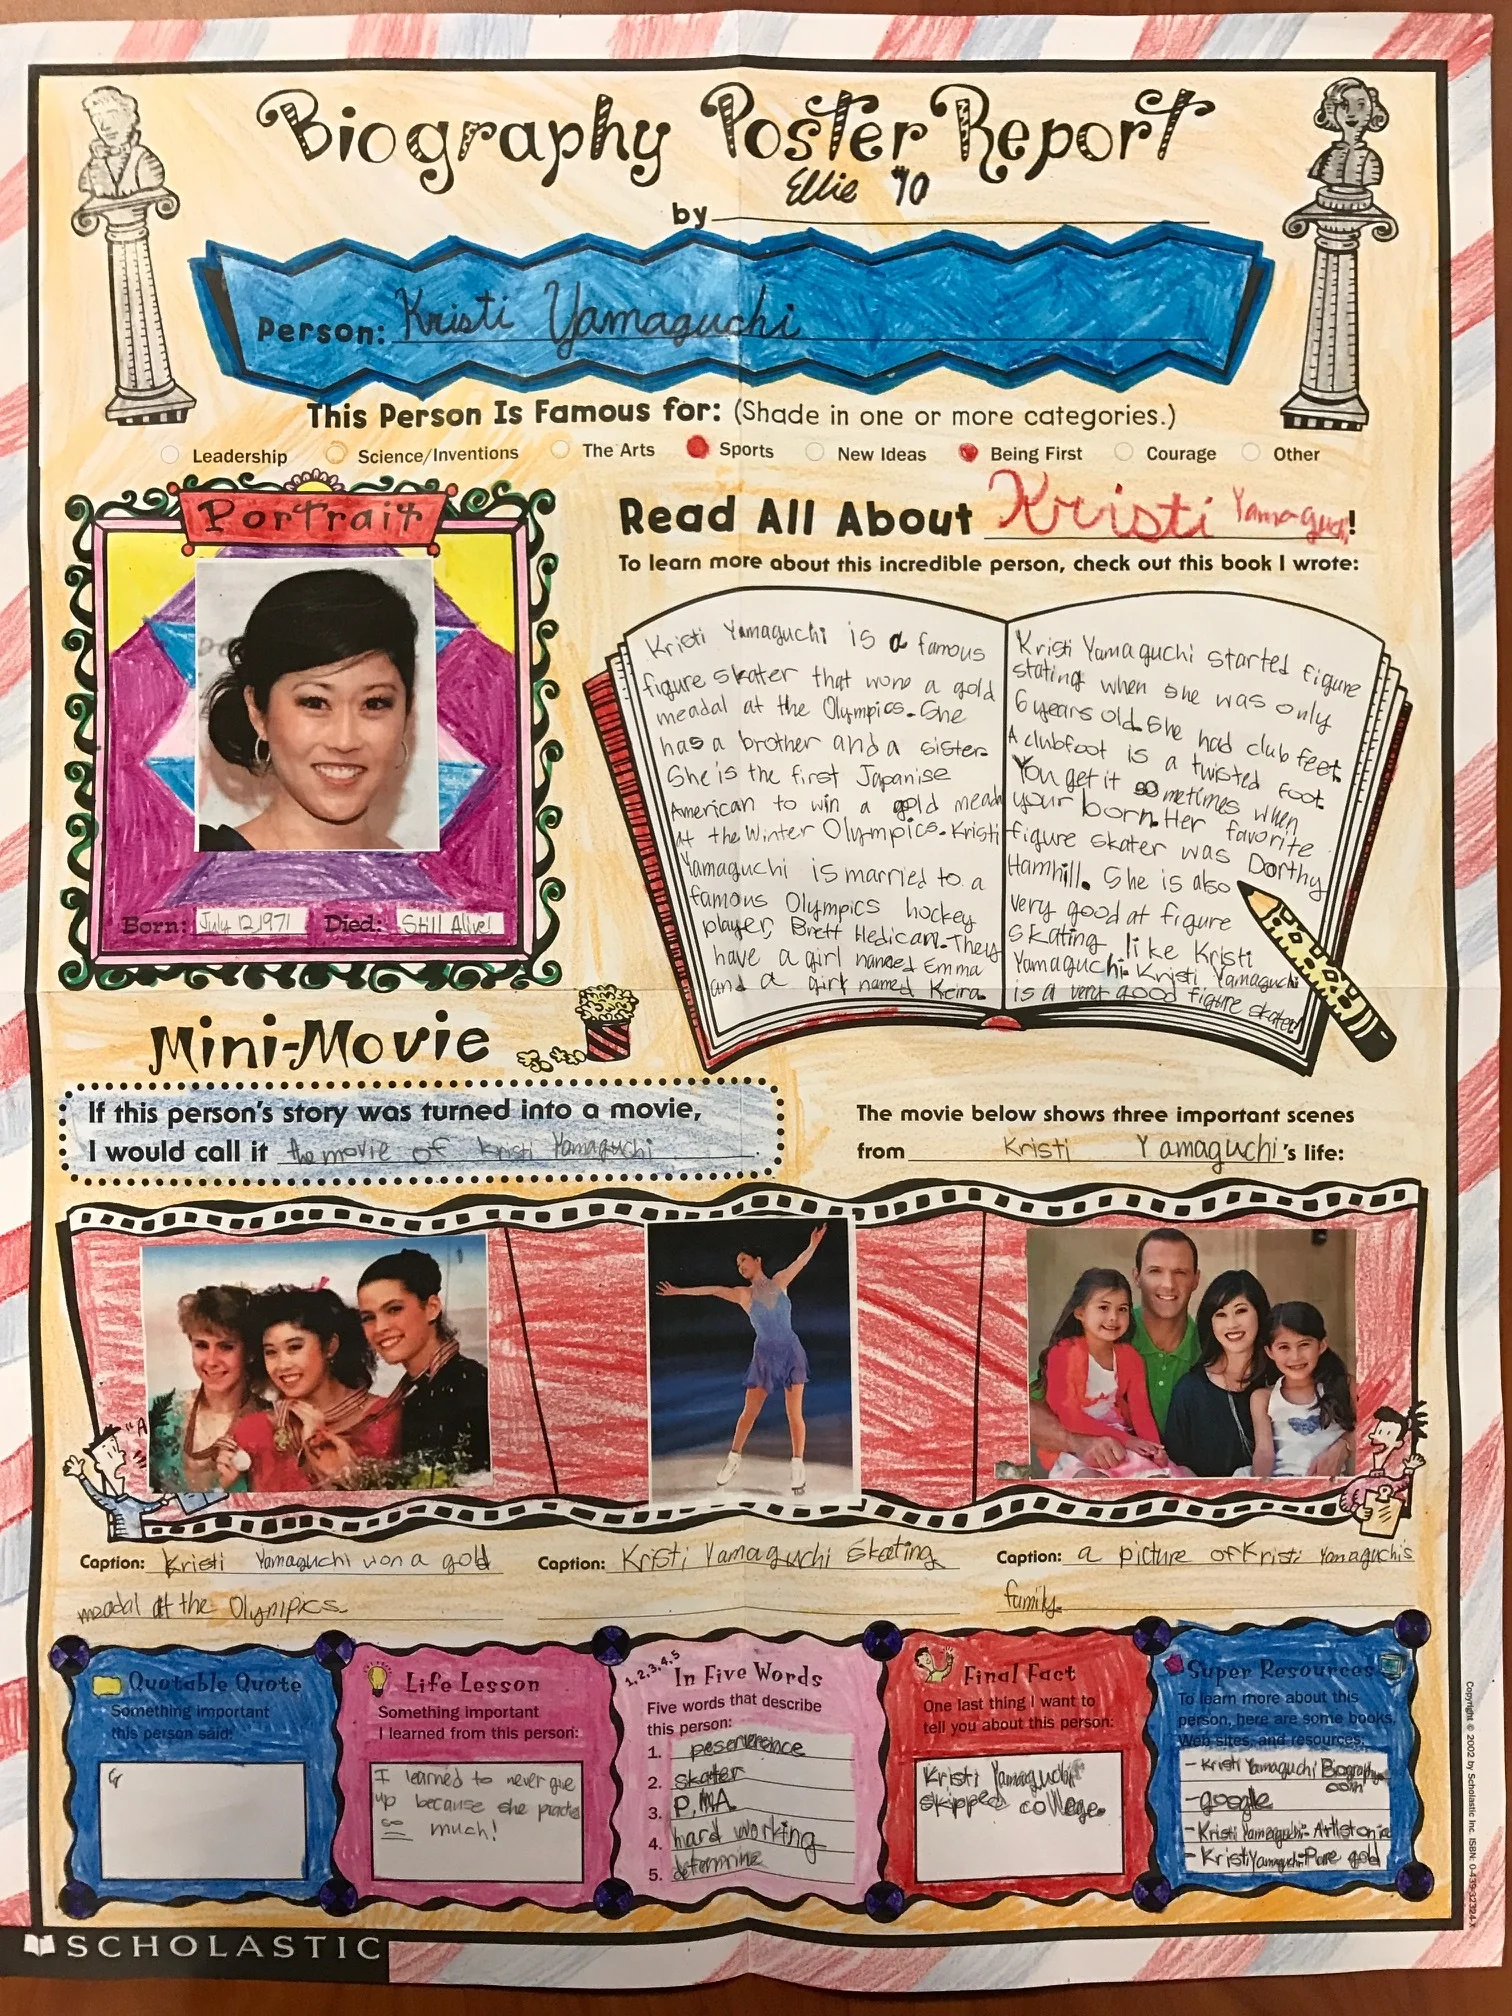 Biography Poster Report
by Ellie #10
Person: Kristi Yamaguchi
This Person Is Famous for: (Shade in one or more categories.)
Leadership Science/Inventions The Arts Sports New Ideas Being First Courage Other
Portrait
Born: July 12,1971 Died: Still Alive!
Read All About Kristi Yamaguci!
To learn more about this incredible person, check out this book I wrote:
Kristi Yamaguchi is a famous
figure skater that wone a gold
meadal at the Olympics. She
has a brother and a sister.
She is the first Japanise
American to win a gold meadl
at the Winter Olympics. Kristi
Yamaguchi is married to a
famous Olympics hockey
player, Brett Hedican. They
have a girl named Emma
and a girl named Keira.
Kristi Yamaguchi started figure
stating when she was only
6 years old. She had club feet.
A clubfoot is a twisted foot.
You get it sometimes when
your born. Her favorite
figure skater was Dorthy
Hamhill. She is also
very good at figure
skating like Kristi
Yamaguchi. Kristi Yamaguchi
is a very good figure skater
Mini-Movie
If this person's story was turned into a movie,
I would call it the movie of Kristi Yamaguchi.
The movie below shows three important scenes
from Kristi Yamaguchi's life:
"A
Caption: Kristi Yamaguchi won a gold
meadal at the Olympics.
Caption: Kristi Yamaguchi Skating
Caption: a picture of Kristi Yamaguchi's
family.
Quotable Quote
Something important
this person said:
G
Life Lesson
Something important
I learned from this person:
I learned to never give
up because she practis
so much!
1,2,3,4,5
In Five Words
Five words that describe
this person:
1. peserverence
2. skater
3. P.M.A
4. hard working
5. determine
Final Fact
One last thing I want to
tell you about this person:
Kristi Yamaguchi
skipped college.
Super Resources
To learn more about this
person, here are some books,
Web sites, and resources:
- Kristi Yamaguchi Biography.
com
- google
- Kristi Yamaguchi-
- Kristi Yamaguchi-Pure gold
Copyright © 2002 by Scholastic Inc. ISBN: 0-439-32324-X
SCHOLASTIC